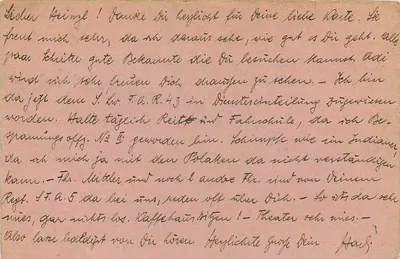 Lieber Heinzl! Danke Dir herzlichst für Deine liebe Karte. Es
freut mich sehr, da ich daraus sehe, wie gut es Dir geht. Alle
paar Schritte gute Bekannte die Du besuchen kannst. Adi
wird sich sehr freuen Dich draußen zu sehen. – Ich bin
da jetzt dem F.A.R. 43 in Diensteinteilung zugewiesen
worden. Halte täglich Reit- und Fahrschule, da ich Be-
spannungsoffz. No II geworden bin. Schimpfe wie ein Indianer,
da ich mich ja mit den Polaken da nicht verständigen
kann. – Fhr. und noch 2 andre Fhr. sind von Deinem
Regt. F.A.5 da bei uns, reden oft über Dich. – Es ist da sehr
mies, gar nichts los. Kaffeehaus ! – Theater sehr mies. –
Also lass baldigst von Dir hören. Herzlichste Grüße Dein